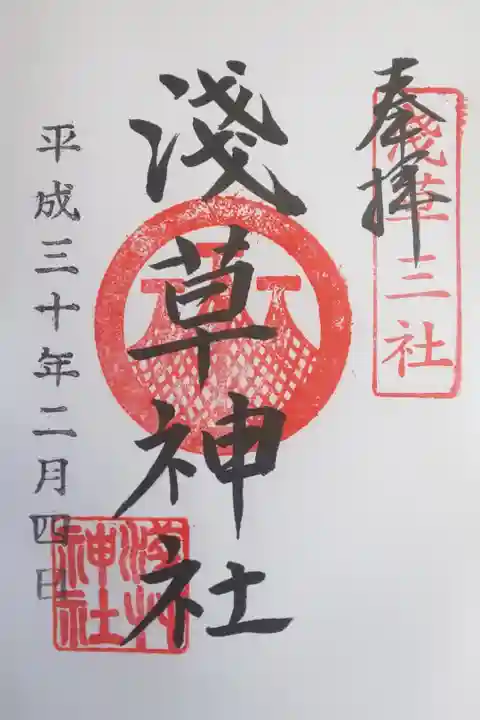 奉拝
淺草三社
淺草神社
平成三十年二月四日
淺草
神社